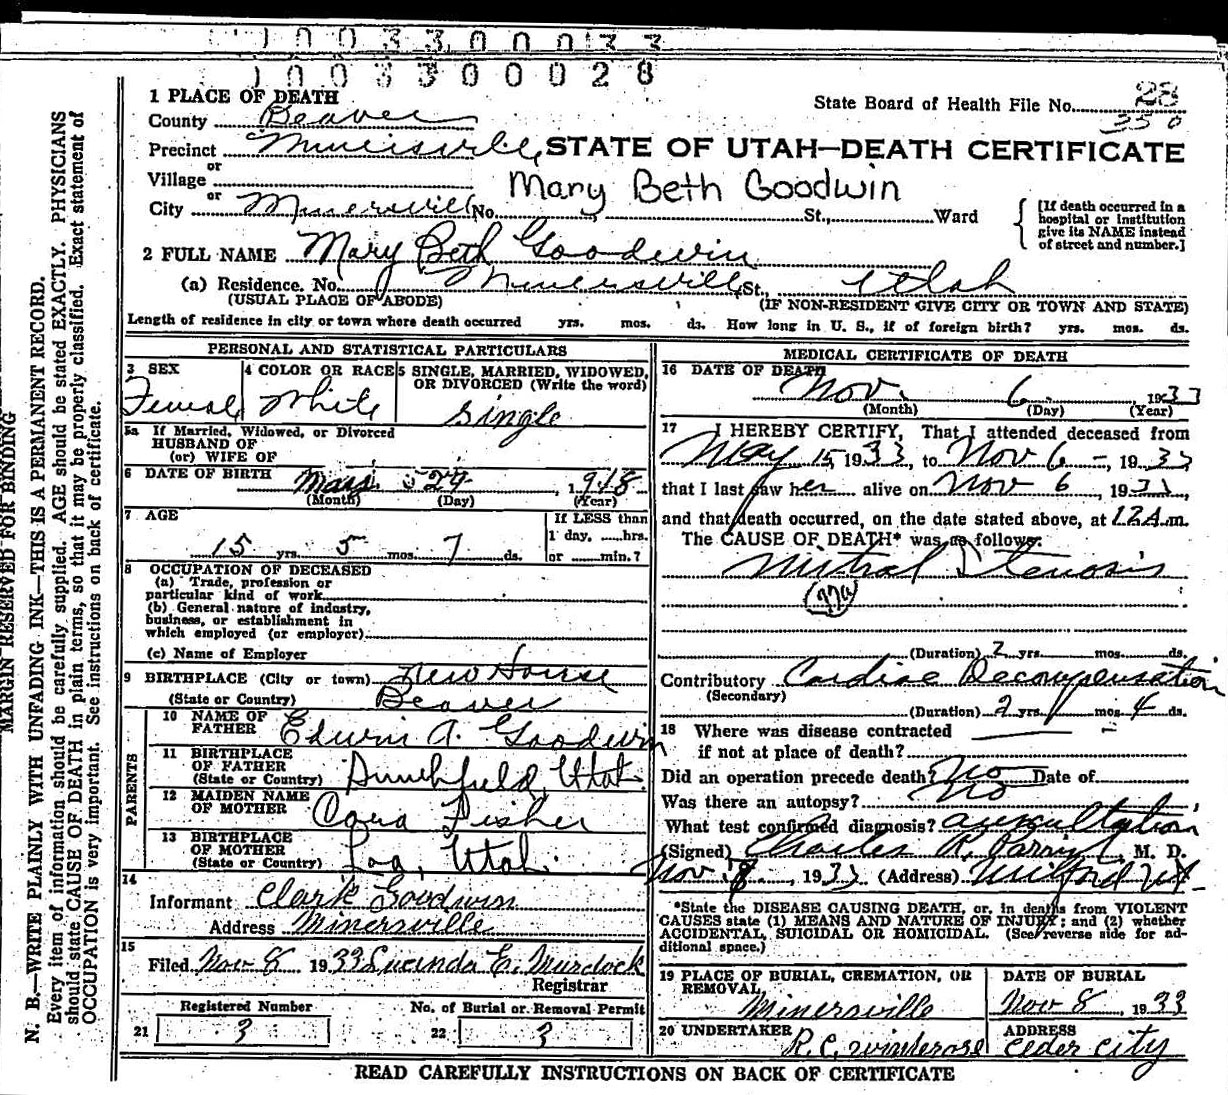 1003300033
1003300028
1 PLACE OF DEATH
State Board of Health File No. 28
350
County Beaver
Precinct Minersville STATE OF UTAH—DEATH CERTIFICATE
or
Village
Mary Beth Goodwin
or
City Minersville No. St., Ward
[If death occurred in a
hospital or institution
give its NAME instead
of street and number.]
2 FULL NAME Mary Beth Goodwin
(a) Residence. No. Minersville St., Utah
(USUAL PLACE OF ABODE) (IF NON-RESIDENT GIVE CITY OR TOWN AND STATE)
Length of residence in city or town where death occurred yrs. mos. ds. How long in U. S., if of foreign birth? yrs. mos. ds.
PERSONAL AND STATISTICAL PARTICULARS
3 SEX
Female
4 COLOR OR RACE
White
5 SINGLE, MARRIED, WIDOWED,
OR DIVORCED (Write the word)
Single
5a If Married, Widowed, or Divorced
HUSBAND OF
(or) WIFE OF
6 DATE OF BIRTH
29, 1918
(Month) (Day) (Year)
7 AGE
15 yrs. 5 mos. 7 ds.
If LESS than
1 day, hrs.
or min.?
8 OCCUPATION OF DECEASED
(a) Trade, profession or
particular kind of work
(b) General nature of industry,
business, or establishment in
which employed (or employer)
(c) Name of Employer
9 BIRTHPLACE (City or town) New House
(State or Country) Beaver
PARENTS
10 NAME OF
FATHER Edwin A. Goodwin
11 BIRTHPLACE
OF FATHER
(State or Country) Smithfield, Utah
12 MAIDEN NAME
OF MOTHER Cora Fisher
13 BIRTHPLACE
OF MOTHER
(State or Country) Loa, Utah.
14
Informant Clark Goodwin
Address Minersville
15
Filed Nov 8 1933 Lucinda E. Murdock
Registrar
Registered Number
21 3
No. of Burial or Removal Permit
22 3
MEDICAL CERTIFICATE OF DEATH
16 DATE OF DEATH
Nov. 6 1933
(Month) (Day) (Year)
17 I HEREBY CERTIFY, That I attended deceased from
May 15, 1933, to Nov 6-, 1933
that I last saw her alive on Nov 6, 1933,
and that death occurred, on the date stated above, at 12 A.m.
The CAUSE OF DEATH* was as follows:
Mitral Stenosis
(Duration) 2 yrs. mos. ds.
Contributory Cardiac Decompensation
(Secondary)
(Duration) 2 yrs. mos. 4 ds.
18 Where was disease contracted
if not at place of death?
Did an operation precede death? No Date of
Was there an autopsy? No
What test confirmed diagnosis? auscultation
(Signed) Charles R. Parrish, M. D.
Nov. 8, 1933 (Address) Milford Ut.
*State the DISEASE CAUSING DEATH, or, in deaths from VIOLENT
CAUSES state (1) MEANS AND NATURE OF INJURY; and (2) whether
ACCIDENTAL, SUICIDAL OR HOMICIDAL. (See reverse side for ad-
ditional space.)
19 PLACE OF BURIAL, CREMATION, OR
REMOVAL
Minersville
DATE OF BURIAL
Nov 8, 1933
20 UNDERTAKER
R. C. Winterose
ADDRESS
Ceder City
READ CAREFULLY INSTRUCTIONS ON BACK OF CERTIFICATE
MARGIN RESERVED FOR BINDING
N. B.—WRITE PLAINLY WITH UNFADING INK—THIS IS A PERMANENT RECORD.
Every item of information should be carefully supplied. AGE should be stated EXACTLY. PHYSICIANS
should state CAUSE OF DEATH in plain terms, so that it may be properly classified. Exact statement of
OCCUPATION is very important. See instructions on back of certificate.